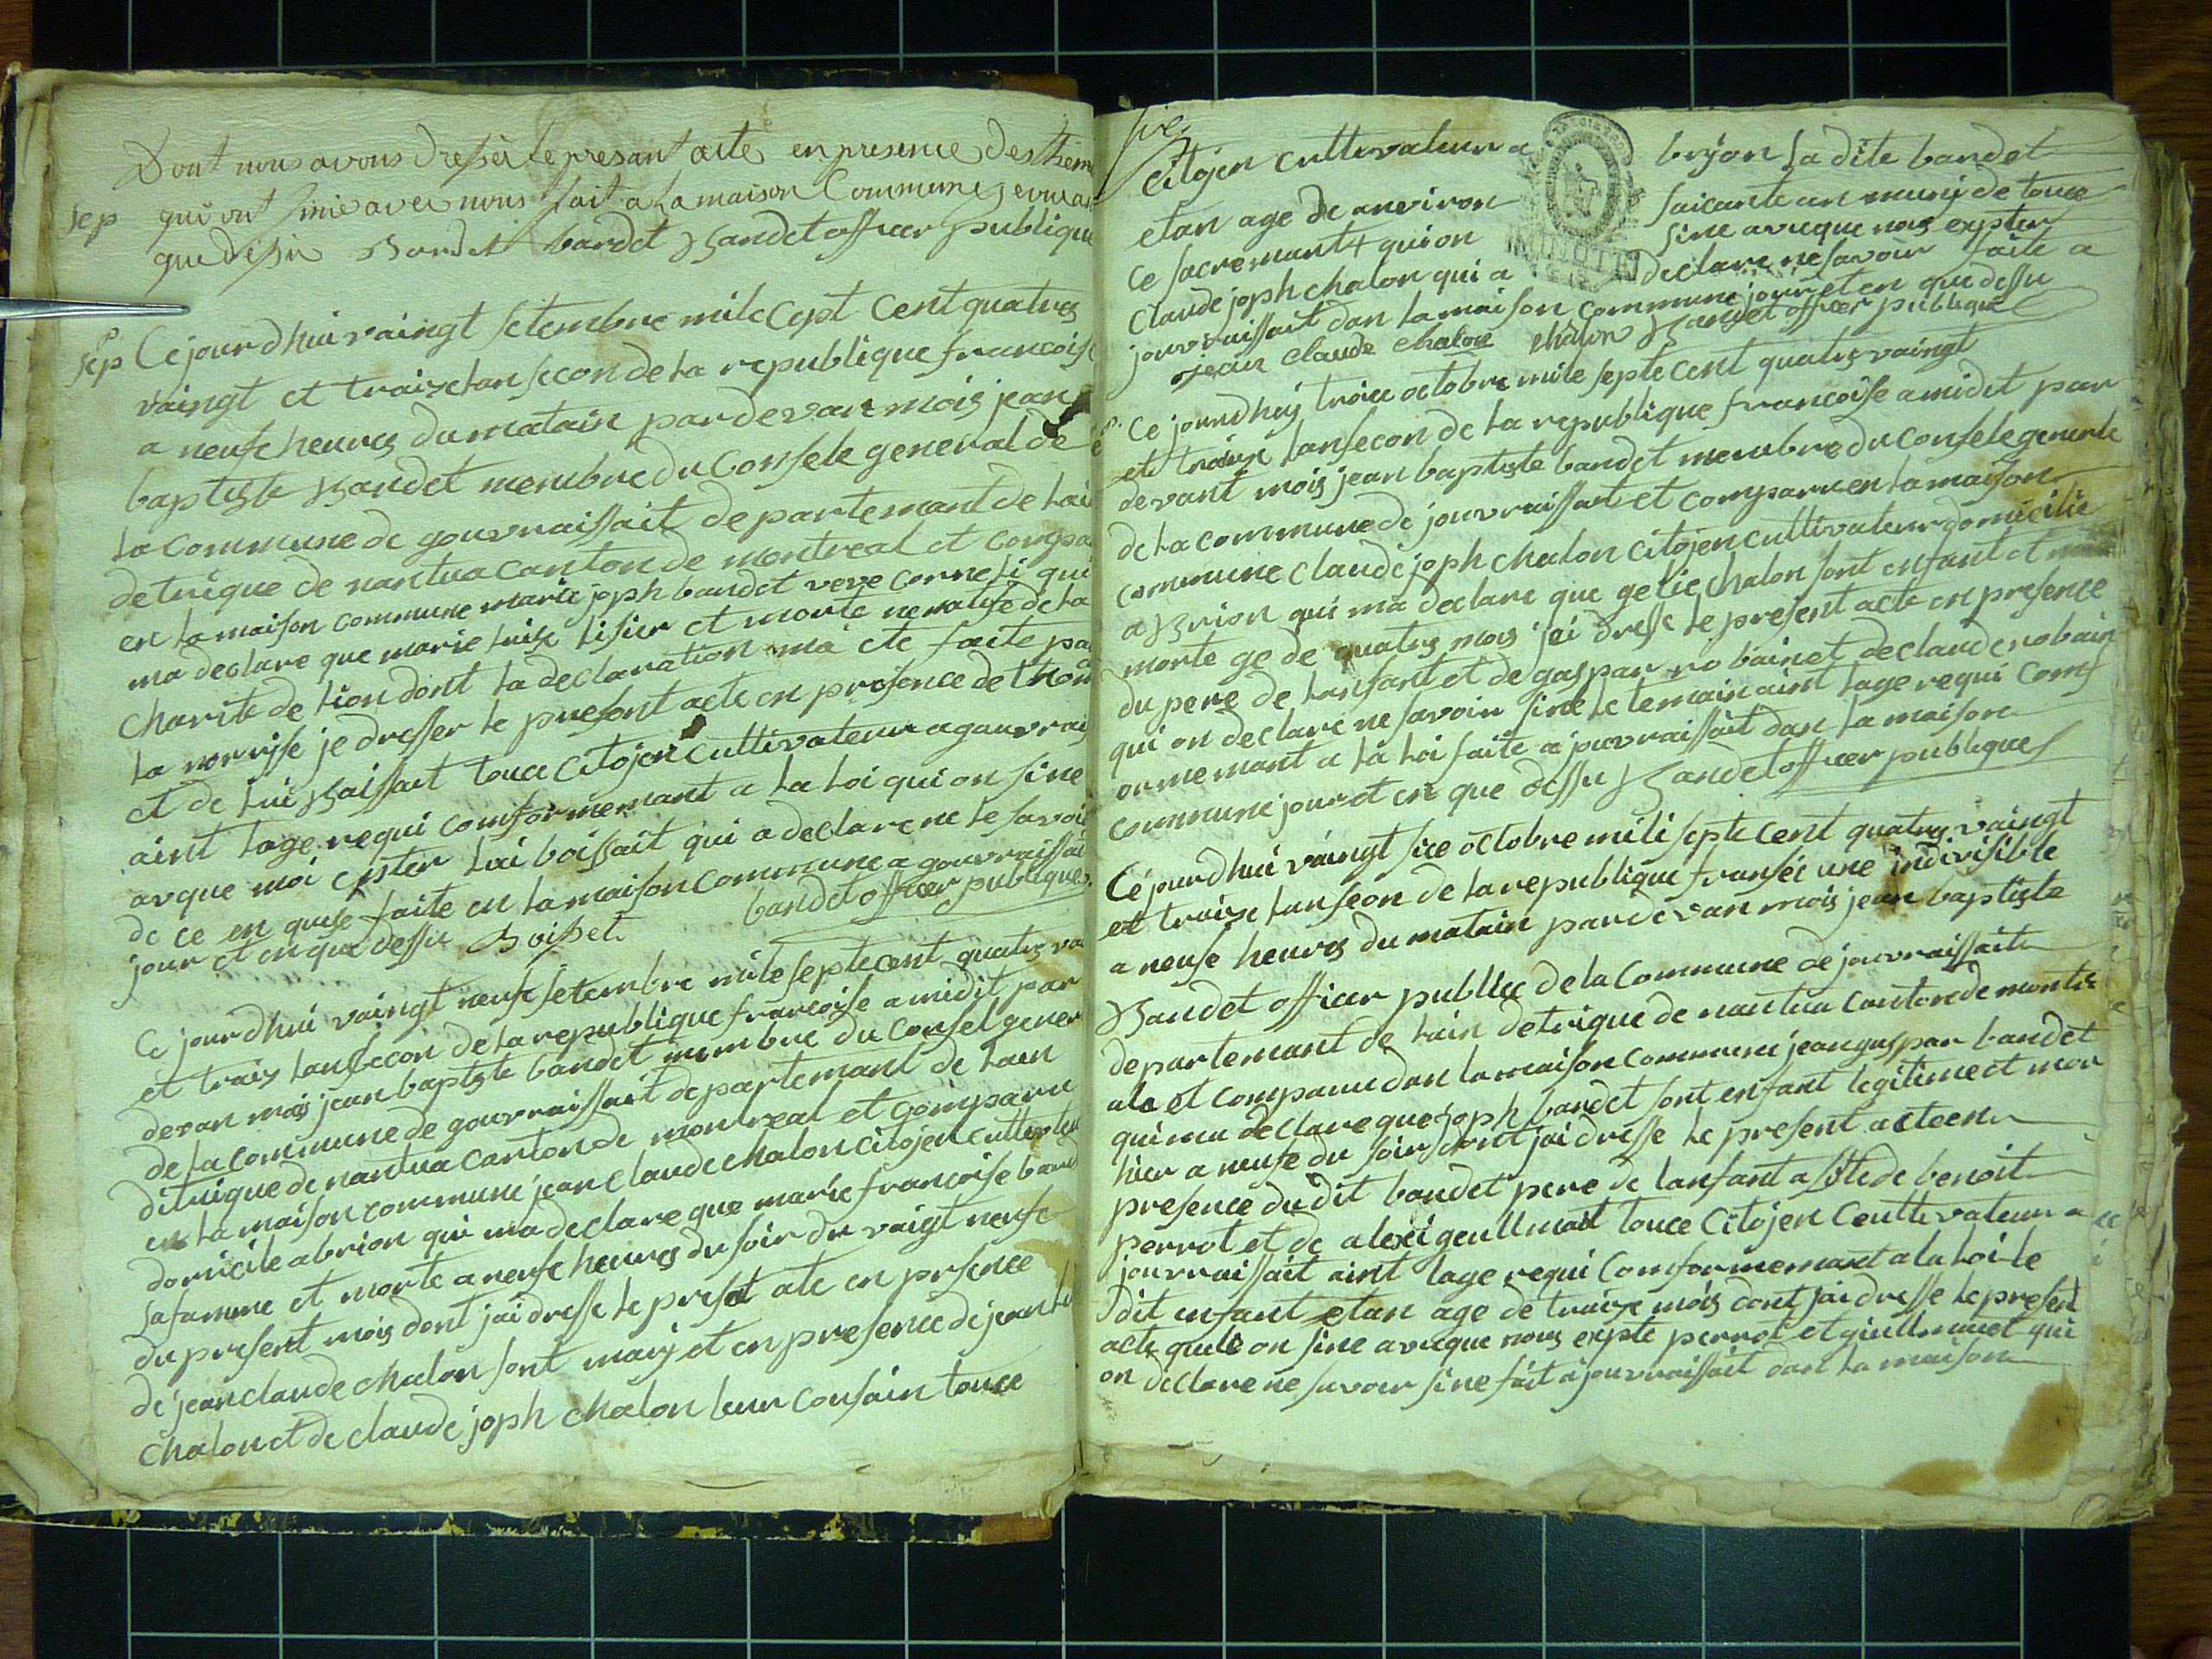 Dont nous avons dressér le presant acte en presence des thém
sep qui ont sinié avec nous fait a la maison Commune
que dessu Bardet bardet Bandet officer publique
sep Ce jourdhui vaingt setembre mile cept cent quatres
vaingt et traize lan secon de la republique francoise
a neufe heures du matain par devan mois jean
baptiste Bandet membre du Consele general de
la commune de gouvraissait departemant de lain
detrique de nantua canton de montreal et compa
en la maison commune marie joph bandet veve corneli qui
ma declare que marie luise lisier et morte ne natife de la
charite de lion dont la declaration ma ete faite par
la norisse je dresser le present acte en presence de thom
et de lui Baissait touce citojen cultivateur a gauvrais
aint lage requi comformemant a la loi qui on sine
avque moi epster lui boissait qui a declare ne le savoir
de ce en quise faite en la maison commune a gouvraissai
jour et en que dessu Boisset bandet officer publiques
Ce jourdhui vaingt neufe setembre mile septe cent quatres va
et traiz lan secon de la republique francoise a midit par
devan mois jean baptiste bandet membre du Consel gener
de la commune de gouvraissait departemant de lain
ditrique de nantua canton de montreal et comparu
en la maison commune jean claude chalon citojen cultivateu
domicile a brion qui ma declare que marie francoise ban
sa famme et morte a neufe heures du soir du vaigt neufe
du present mois dont jai dresse le preset ate en presence
de jean claude chalon sont marij et en presence de jean
chalon et de claude joph chalon leur cousain touce
citojen cultivateur a brijon la dite bandet
etan age de anviron saicante an munij de touce
ce sacremant + qui on sine avecque nous expter
Claude joph chalon qui a declare ne savoir faite a
jouvraissait dan la maison commune jour et en que dessu
jean claude chalon chalon Bandet officer publique
MINUTE
Ce jourdhuij troice octobre mile septe cent quatres vaingt
et traize lan secon de la republique francoise a midit par
devant mois jean baptiste bandet membre du consele generle
de la commune de jouvraissait et comparu en la maison
commune claude joph chalon citojen cultivateur domicilie
a Brion qui ma declare que gelie chalon sont enfant et
morte ge de quatres mois jai dresse le present acte en presence
du pere de lanfant et de gaspar robain et de claude robain
qui on declare ne savoir sine le temain aint lage requi comf
ormemant a la loi faite a jouvraissait dan la maison
commune jour et en que dessu Bandet officer publiques
Ce jourdhui vaingt sice octobre mili septe cent quatres vaingt
et traize lan secon de la republique fransei une indivisible
a neufe heures du matain par devan mois jean baptiste
Bandet officer publicc de la Commune de jouvraissait
departemant de lain detrique de nantua Canton de montre
ale et comparu dan la maison commune jean gaspar bandet
qui ma declare que joph bandet sont enfant legitime et mor
hier a neufe du soir dont jai dresse le present acte en
presence dudit bandet pere de lanfant a site de benoit
perrot et de alexi geullmait touce Citojen Ceultivateur a
jouvraissait aint lage requi Comformemant a la loi le
dit enfant etan age de traize mois dont jai dresse le present
acte quile on sine avecque nous expte perrot et giullmuet qui
on declare ne savoir sine fait a jouvraissait dan la maison